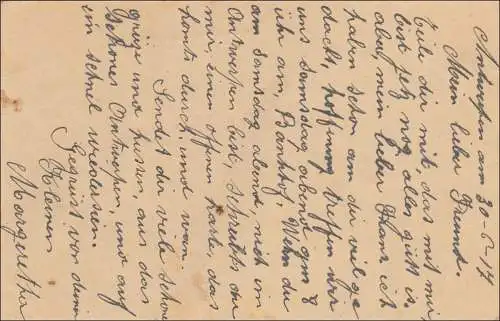 Antwerpen am 30-5-17
Mein lieber Freund.
Teile dir mit, das mit mir
bist jetz nog alles gütt is.
aber, mein lieber Franz ich
habn schon an dir vielge
dacht, hoffnung treffen wir
uns samsdag abend gm 8
ühr am, Banhof. Wenn du
am Samsdag abend, nich im
Antwerpen bist, schreibs du
mir, einen offnen karte, das
komts durch und wan.
Sendet dir viele schöne
grüse und kussen, aus das
schönes Antwerpen, und auf
ein schnel wiedersein.
Gegrüst von deine
Kleinen
Margeretha